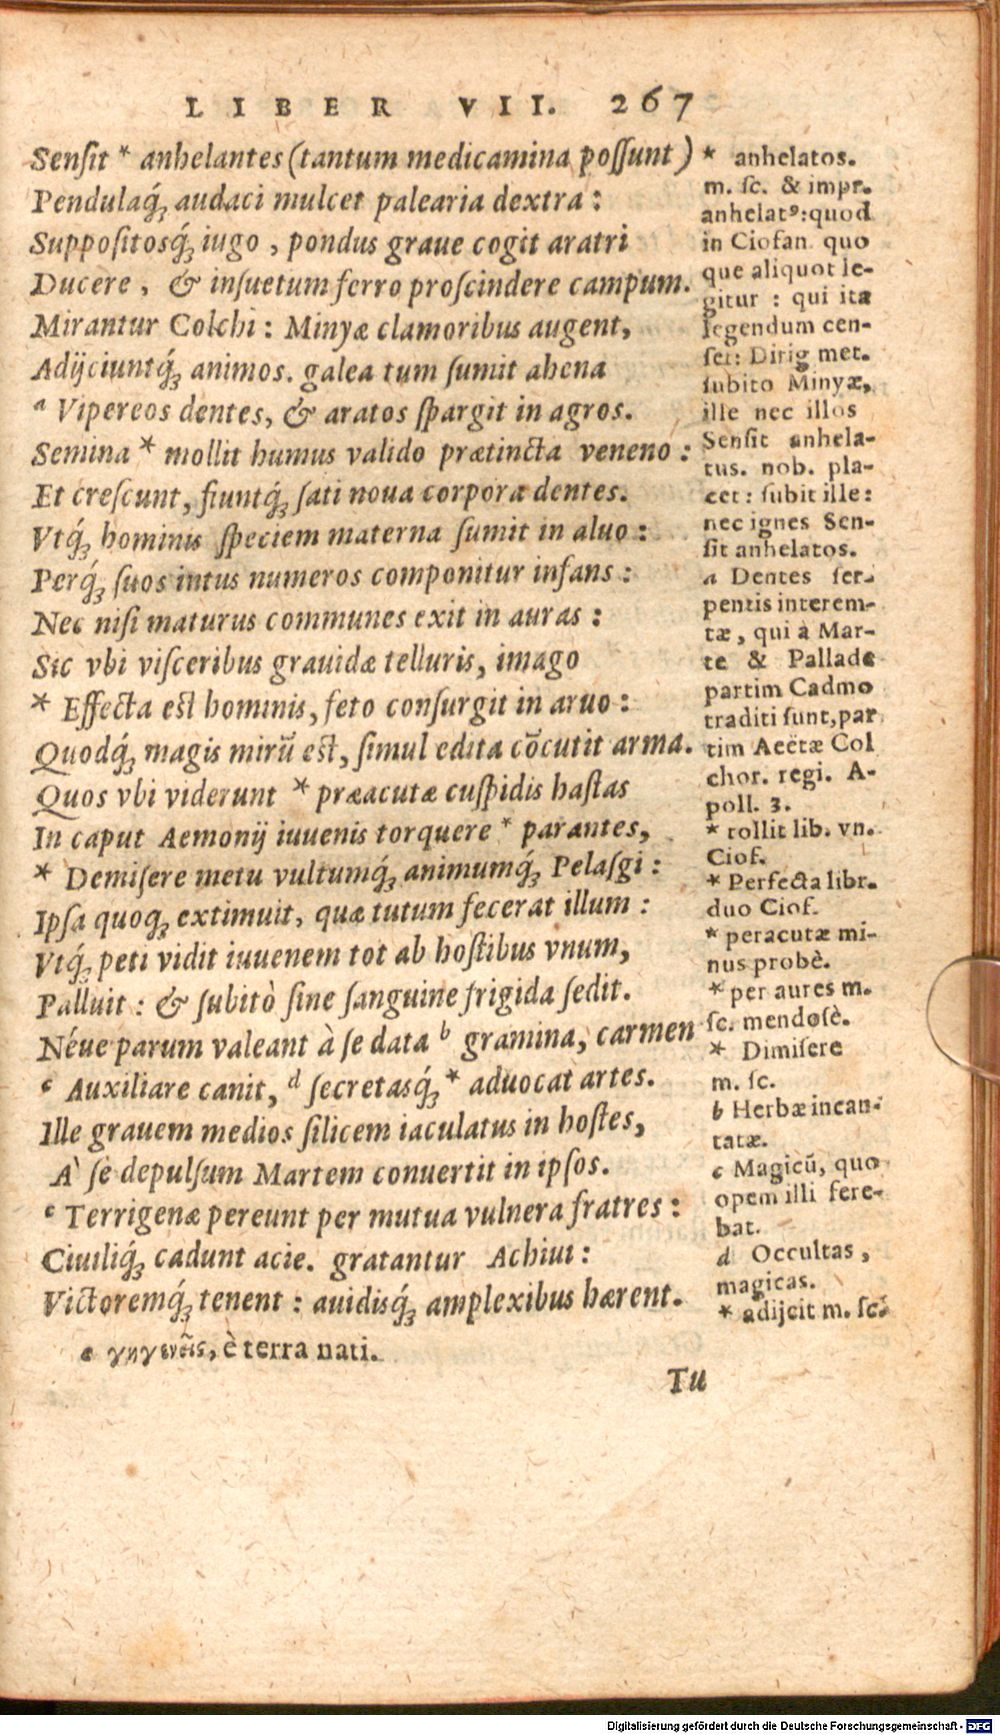 LIBER VII. 267
Senſit * anhelantes (tantum medicamina poſſunt)
Pendulaq́ꝫ audaci mulcet palearia dextra :
Suppoſitosq́ꝫ iugo , pondus graue cogit aratri
Ducere , & inſuetum ferro proſcindere campum.
Mirantur Colchi : Minyæ clamoribus augent,
Adijciuntq́ꝫ animos. galea tum ſumit ahena
a Vipereos dentes, & aratos ſpargit in agros.
Semina * mollit humus valido prætincta veneno :
Et creſcunt, fiuntq́ꝫ ſati noua corpora dentes.
Vtq́ꝫ hominis ſpeciem materna ſumit in aluo :
Perq́ꝫ ſuos intus numeros componitur infans :
Nec niſi maturus communes exit in auras :
Sic vbi viſceribus grauidæ telluris, imago
* Effecta eſt hominis, feto conſurgit in aruo :
Quodq́ꝫ magis mirũ eſt, ſimul edita cõcutit arma.
Quos vbi viderunt * præacutæ cuſpidis haſtas
In caput Aemonij iuuenis torquere * parantes,
* Demiſere metu vultumq́ꝫ animumq́ꝫ Pelaſgi :
Ipſa quoqꝫ extimuit, quæ tutum fecerat illum :
Vtq́ꝫ peti vidit iuuenem tot ab hoſtibus vnum,
Palluit : & ſubitò ſine ſanguine frigida ſedit.
Néue parum valeant à ſe data b gramina, carmen
c Auxiliare canit, d ſecretasq́ꝫ * aduocat artes.
Ille grauem medios ſilicem iaculatus in hoſtes,
A' ſe depulſum Martem conuertit in ipſos.
e Terrigenæ pereunt per mutua vulnera fratres :
Ciuiliq́ꝫ cadunt acie. gratantur Achiui :
Victoremq́ꝫ tenent : auidisq́ꝫ amplexibus hærent.
e γηγενεῖς, è terra nati.
* anhelatos.
m. ſc. & impr.
anhelatꝰ: quod
in Ciofan. quo
que aliquot le-
gitur : qui ita
legendum cen-
ſet: Dirig met.
ſubito Minyæ,
ille nec illos
Senſit anhela-
tus. nob. pla-
cet : ſubit ille :
nec ignes Sen-
ſit anhelatos.
a Dentes ſer-
pentis interem-
tæ, qui à Mar-
te & Pallade
partim Cadmo
traditi ſunt, par
tim Aeëtæ Col
chor. regi. A-
poll. 3.
* tollit lib. vn.
Ciof.
* Perfecta libr.
duo Ciof.
* peracutæ mi-
nus probè.
* per aures m.
ſc. mendoſè.
* Dimiſere
m. ſc.
b Herbæ incan-
tatæ.
c Magicũ, quo
opem illi fere-
bat.
d Occultas,
magicas.
* adijcit m. ſc.
Tu
Digitalisierung gefördert durch die Deutsche Forschungsgemeinschaft - DFG